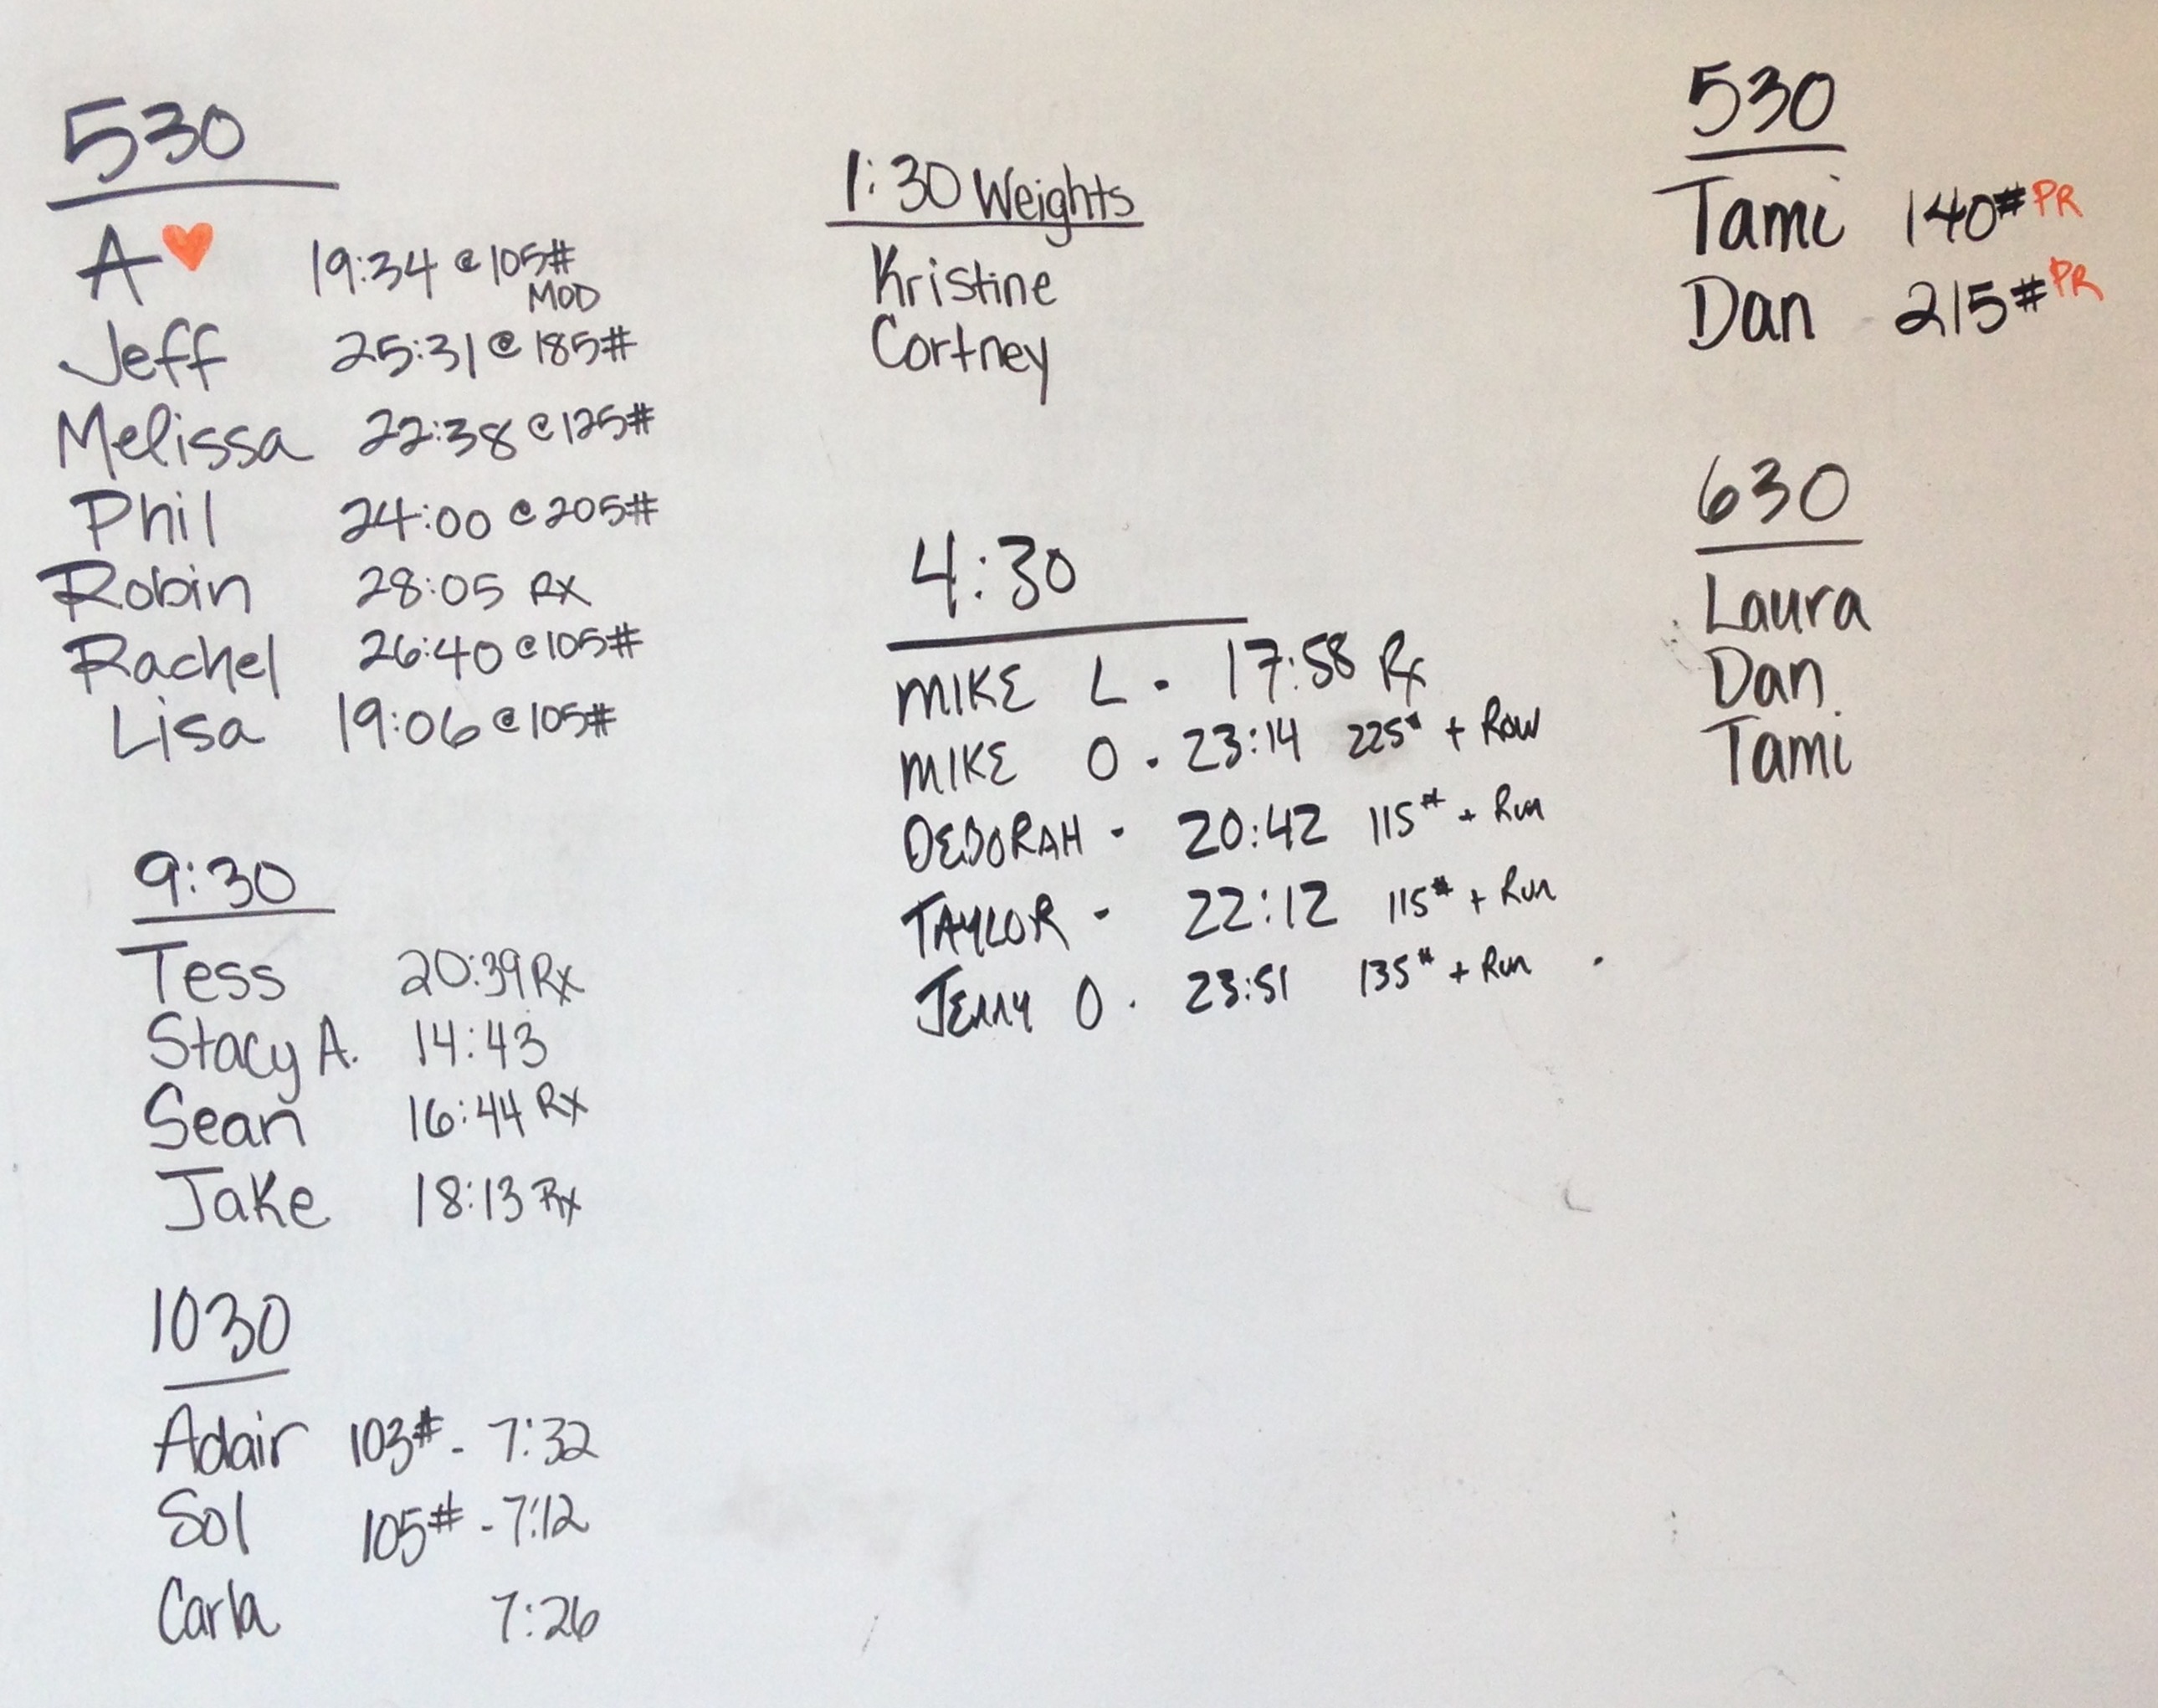 530
A♥ 19:34 @ 105#
MOD
Jeff 25:31 @ 185#
Melissa 22:38 @ 125#
Phil 24:00 @ 205#
Robin 28:05 RX
Rachel 26:40 @ 105#
Lisa 19:06 @ 105#
9:30
Tess 20:39 Rx
Stacy A. 14:43
Sean 16:44 Rx
Jake 18:13 Rx
1030
Adair 103# - 7:32
Sol 105# - 7:12
Carla 7:26
1:30 Weights
Kristine
Cortney
4:30
MIKE L - 17:58 Rx
MIKE O - 23:14 225# + Row
DEBORAH - 20:42 115# + Run
TAYLOR - 22:12 115# + Run
JERRY O - 23:51 135# + Run
530
Tami 140# PR
Dan 215# PR
630
Laura
Dan
Tami